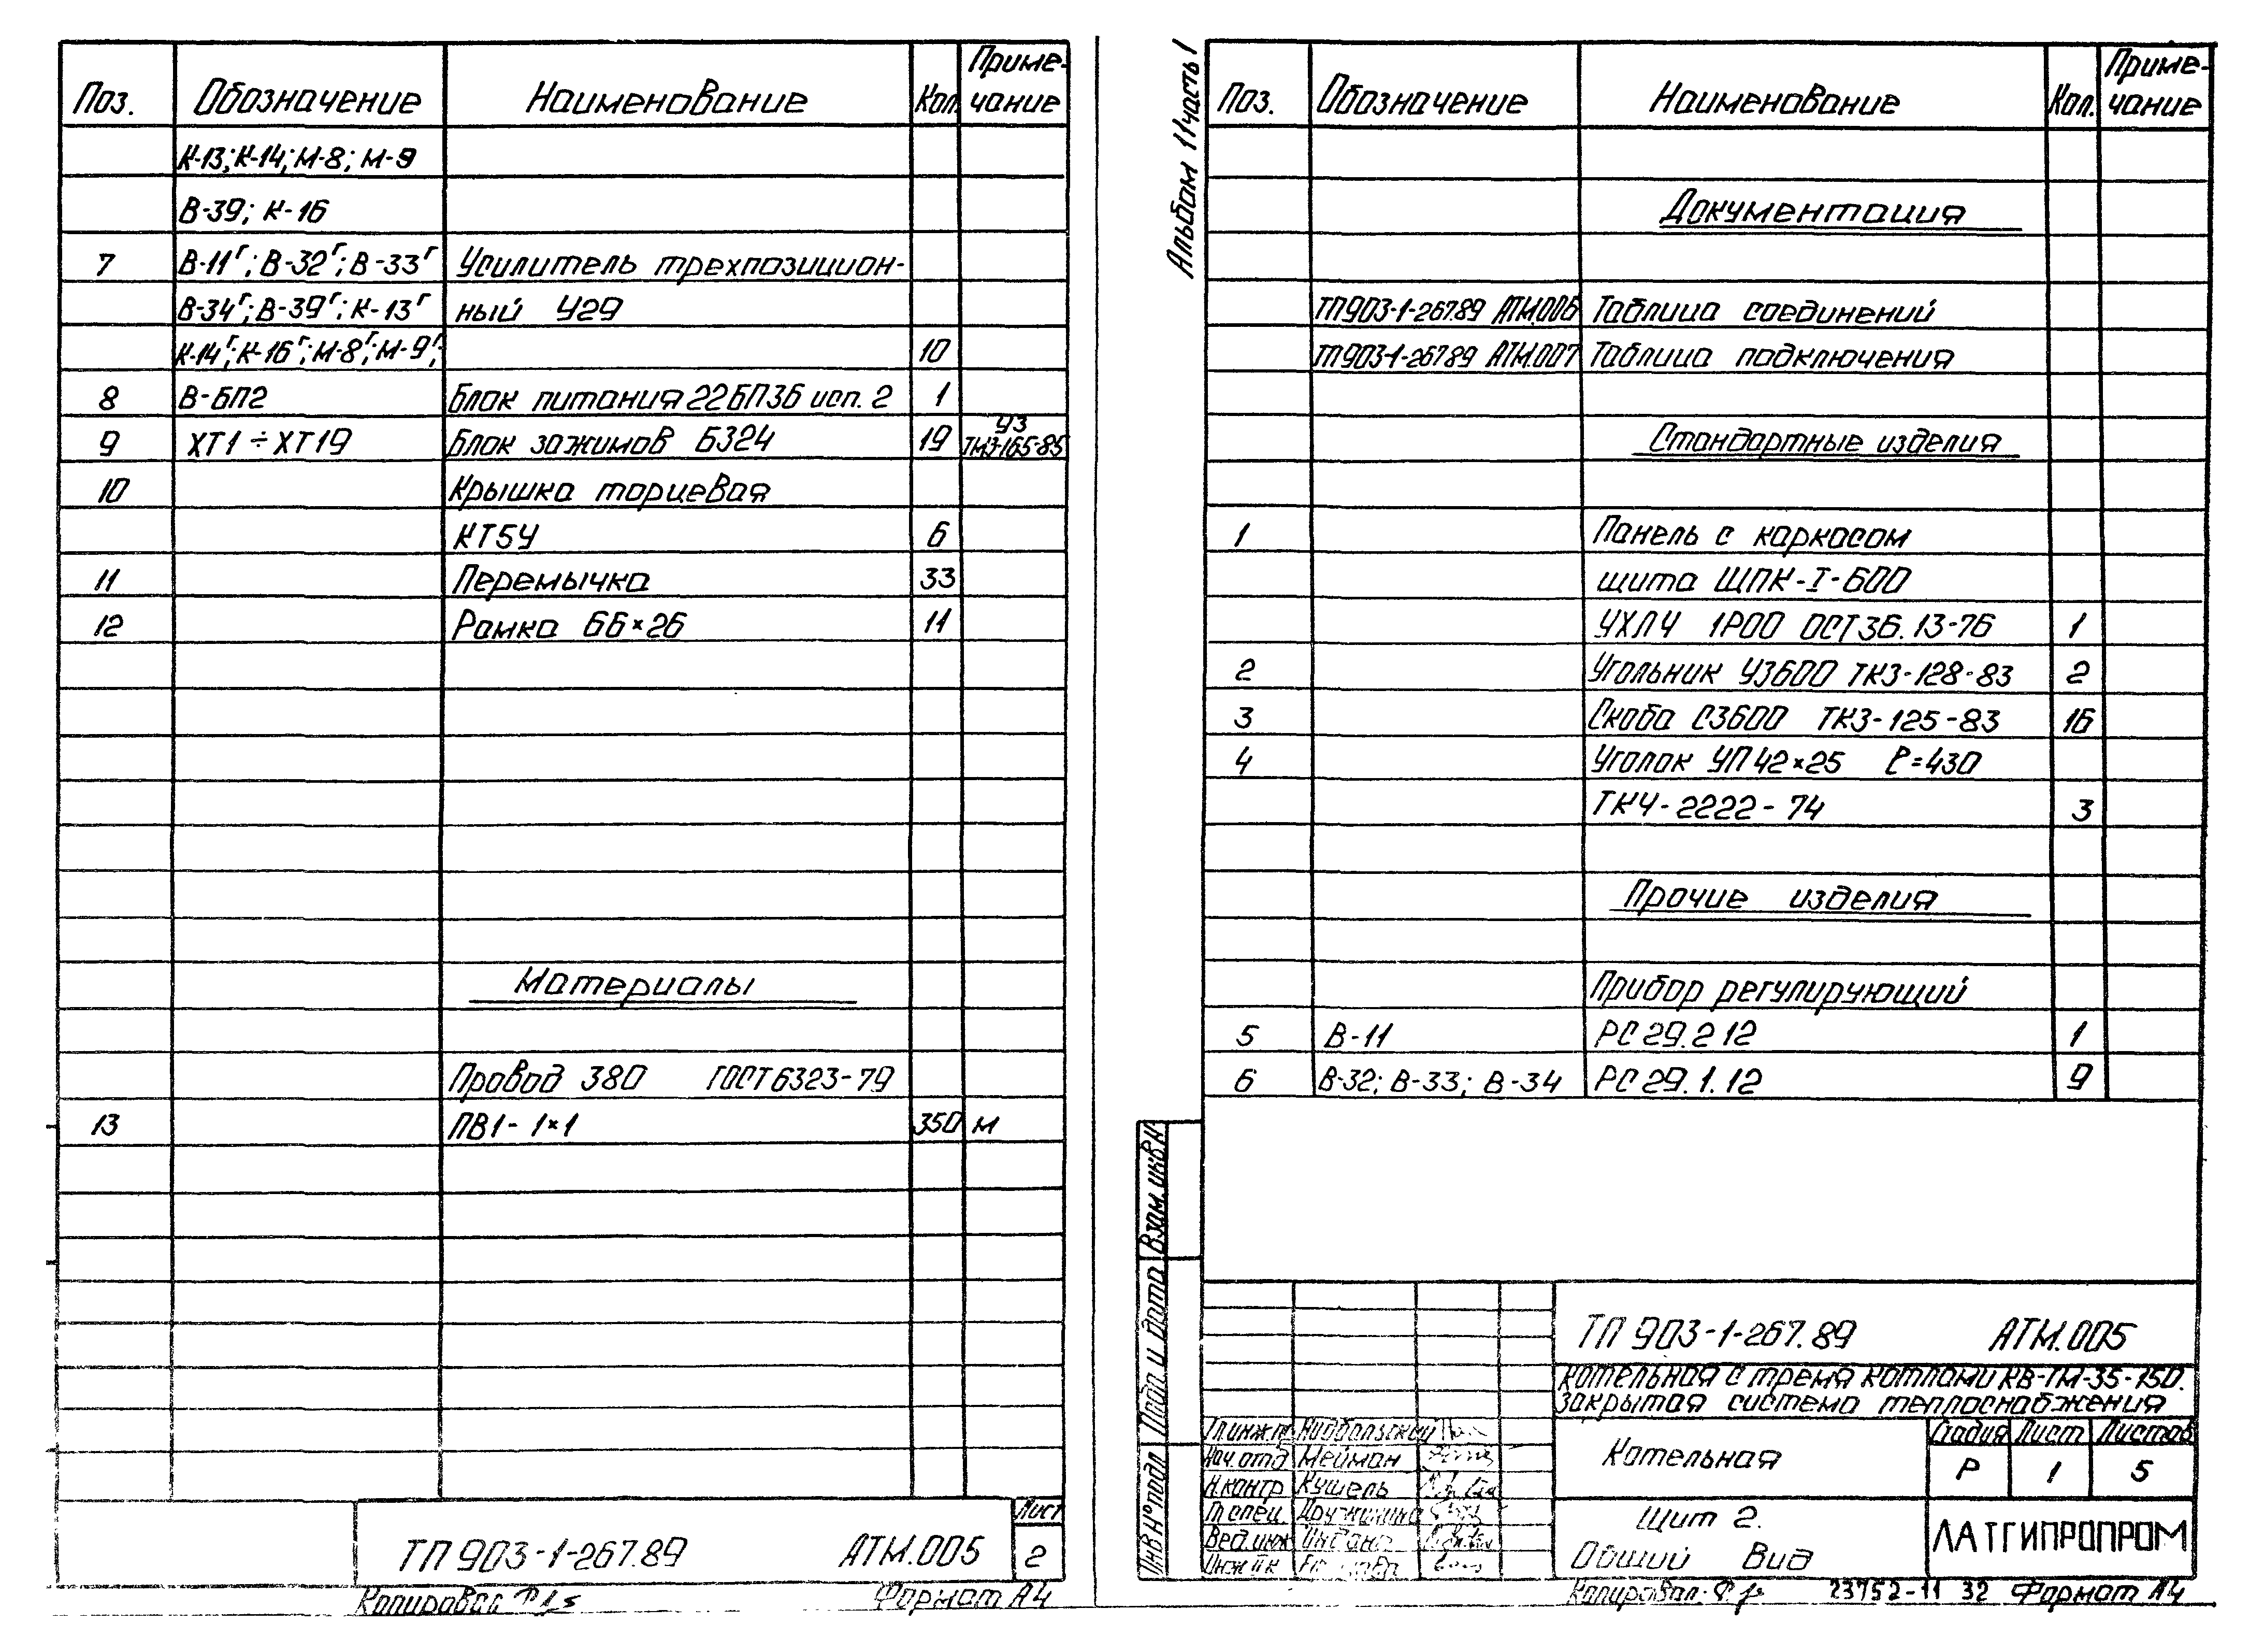 Поз. Обозначение Наименование Кол. Приме-
чание
К-13; К-14; М-8; М-9
В-39; К-16
7 В-11г; В-32г; В-33г Усилитель трехпозицион-
В-34г; В-39г; К-13г ный У29
К-14г; К-16г; М-8г; М-9г; 10
8 В-БП2 Блок питания 22БП36 исп. 2 1
9 ХТ1÷ХТ19 Блок зажимов БЗ24 19 У3 ТМ3-165-85
10 Крышка торцевая
КТ5У 6
11 Перемычка 33
12 Рамка 66×26 11
Материалы
Провод 380 ГОСТ 6323-79
13 ПВ1-1×1 350 м
Лист
ТП 903-1-267.89 АТМ.005 2
Копировал Формат А4
Альбом 11 часть 1
Поз. Обозначение Наименование Кол. Приме-
чание
Документация
ТП903-1-267.89 АТМ.006 Таблица соединений
ТП903-1-267.89 АТМ.007 Таблица подключения
Стандартные изделия
1 Панель с каркасом
щита ЩПК-I-600
УХЛ4 1Р00 ОСТ36.13-76 1
2 Угольник УЗ600 ТК3-128-83 2
3 Скоба С3600 ТК3-125-83 16
4 Уголок УП42×25 ℓ=430
ТК4-2222-74 3
Прочие изделия
Прибор регулирующий
5 В-11 РС29.2.12 1
6 В-32; В-33; В-34 РС29.1.12 9
Взам. инв.н
Подп. и дата
Инв.№ подл
ТП 903-1-267.89 АТМ.005
Котельная с тремя котлами КВ-ГМ-35-150.
Закрытая система теплоснабжения
Гл.инж.п
Нач.отд Мейман
Н.контр Кушель
Гл.спец. Дружинина
Вед.инж
Инж.IIк
Котельная
Стадия Лист Листов
Р 1 5
Щит 2.
Общий вид
ЛАТГИПРОПРОМ
Копировал: 23752-11 32 Формат А4